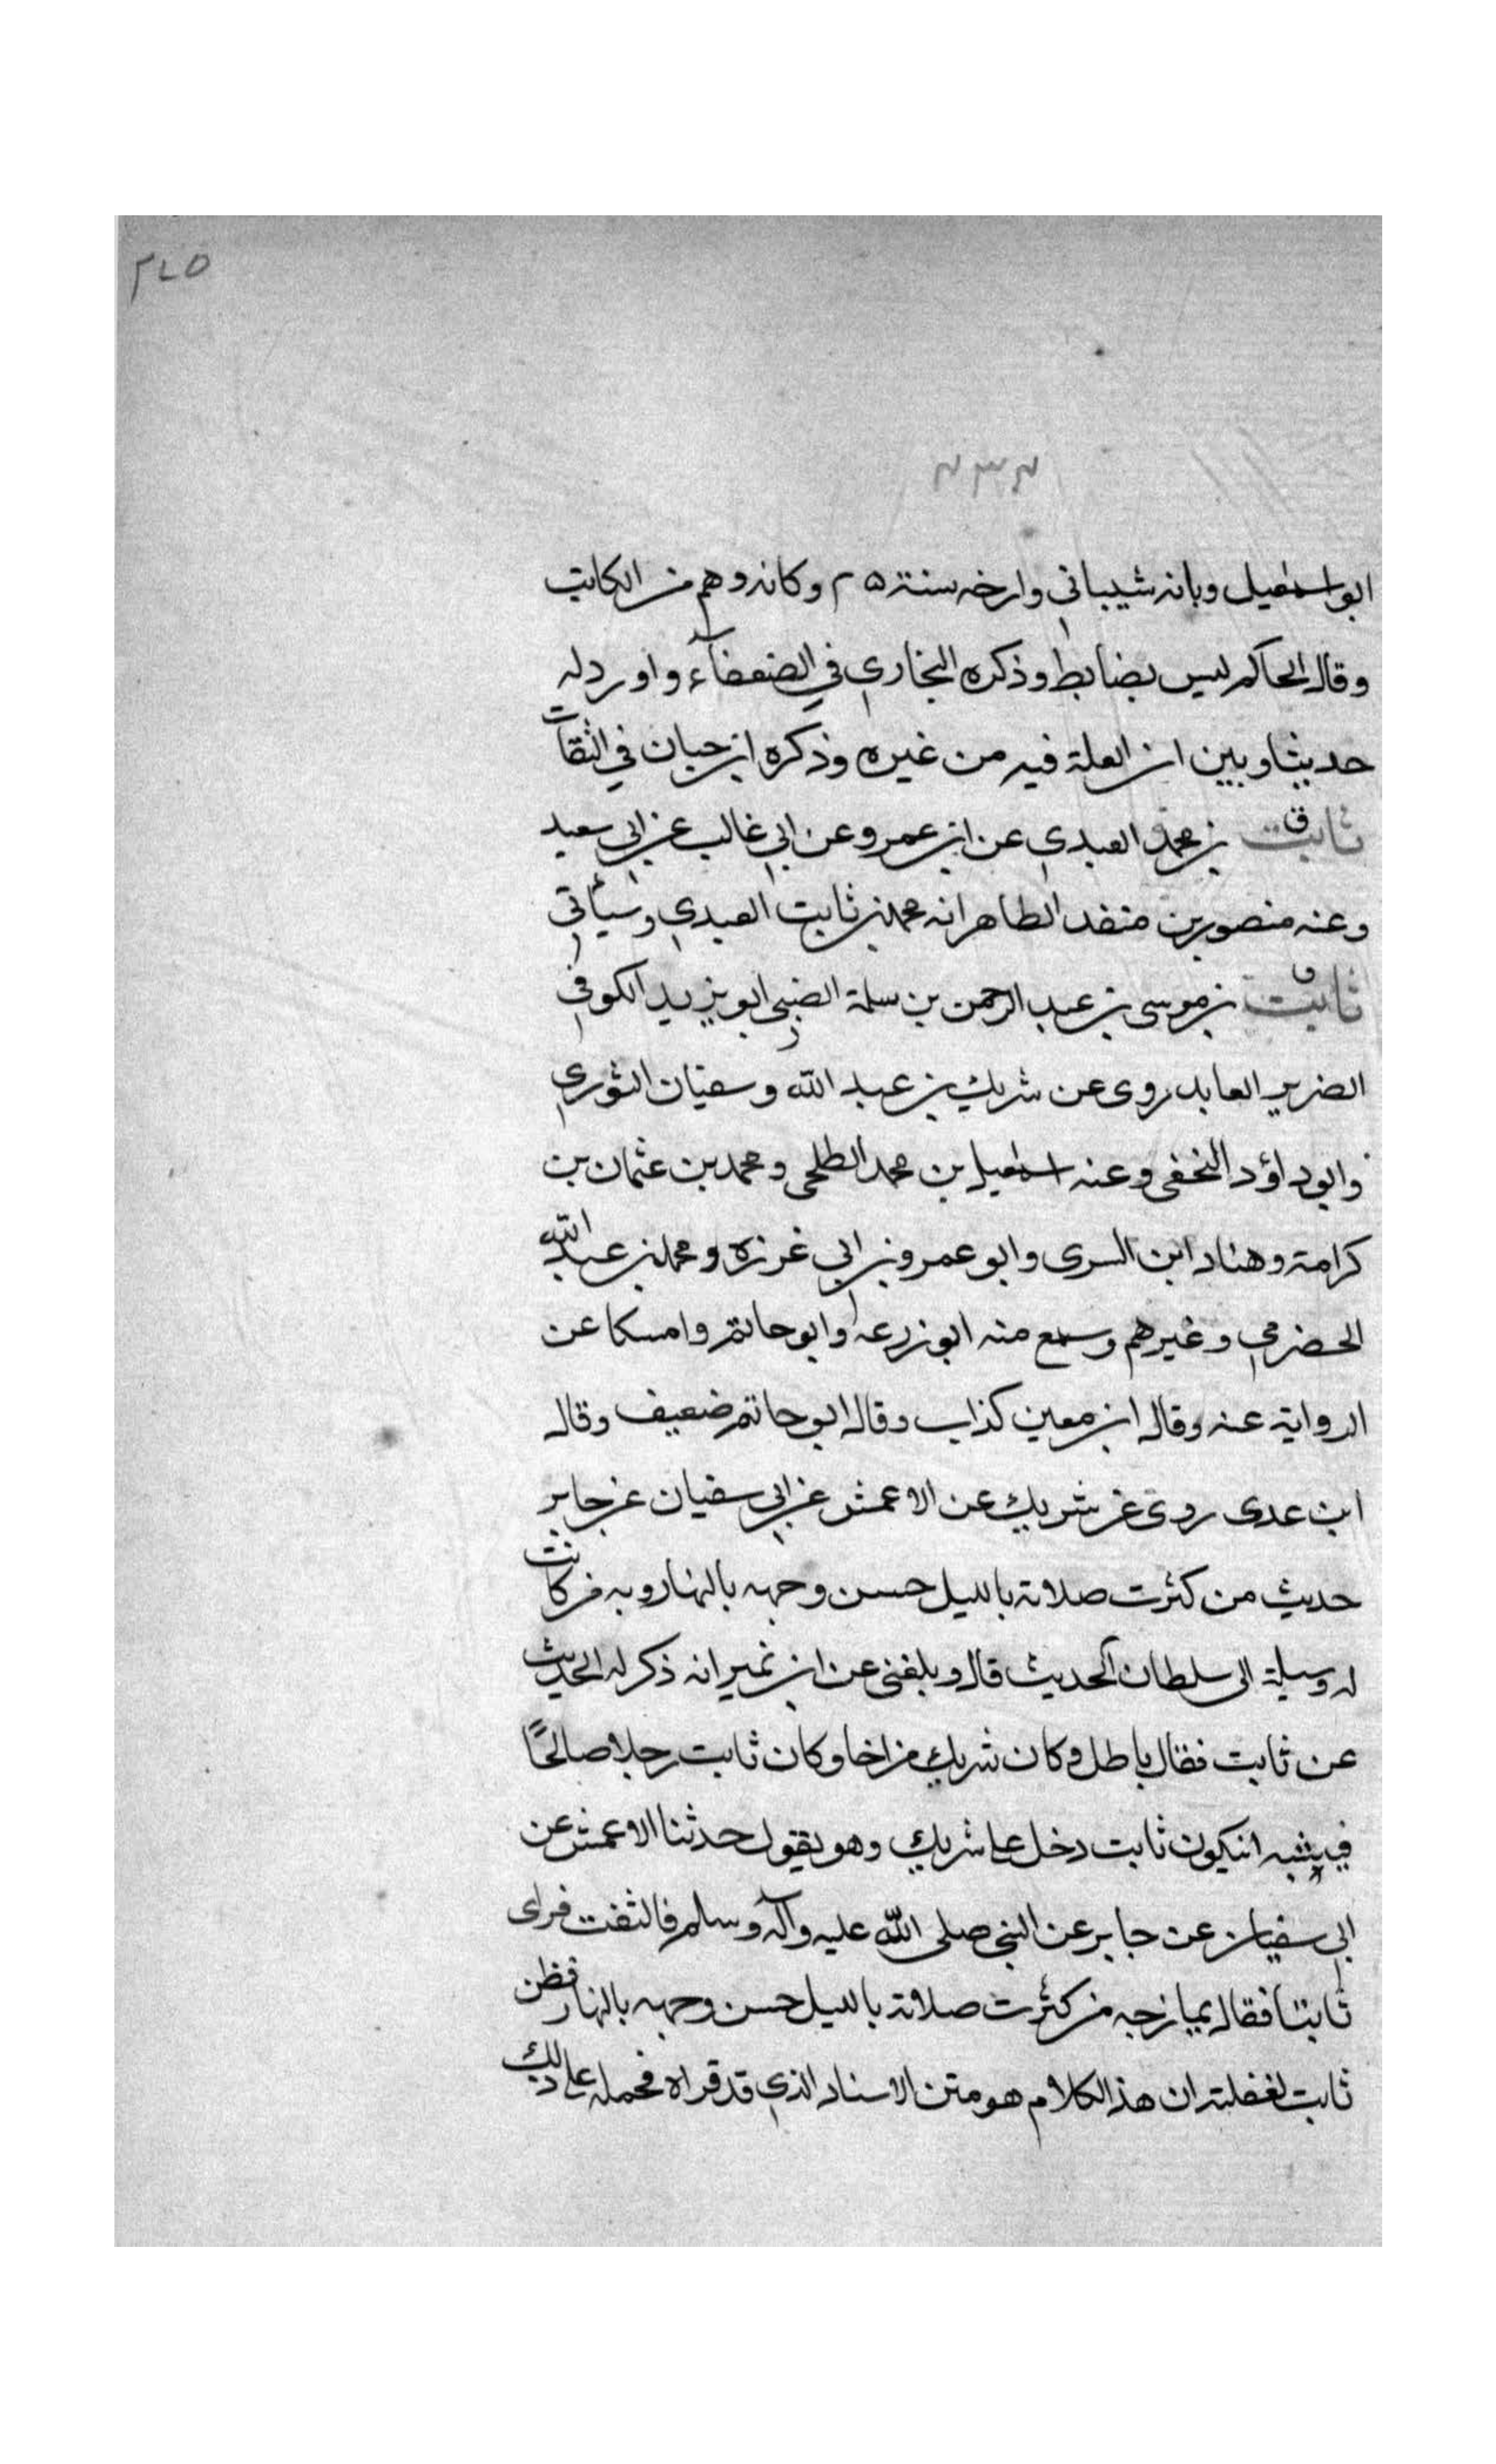 ٢٦٥
٢٣٢
ابو اسمعيل وبانه شيباني وارخه سنة ٢٥ وكانه وهم من الكاتب
وقال الحاكم ليس بضابط وذكره البخاري في الضعفآء واورد له
حديثا وبين ان العلة فيه من غيره وذكره ابن حبان في الثقات
ثابت ق بن محمد العبدي عن ابن عمر وعن ابي غالب عن ابي سعيد
وعنه منصور بن منقد الطاهر انه محمد بن ثابت العبدي وسيأتي
ثابت ق بن موسى بن عبد الرحمن بن سلمة الضبي ابو يزيد الكوفي
الضرير العابد روى عن شريك بن عبد الله وسفيان الثوري
وابو داؤد النخفى وعنه اسمعيل بن محمد الطلحى ومحمد بن عثمان بن
كرامة وهناد ابن السرى وابو عمرو بن ابي غرزه ومحمد بن عبد الله
الحضرمي وغيرهم وسمع منه ابو زرعه وابو حاتم وامسكا عن
الرواية عنه وقال ابن معين كذاب وقال ابو حاتم ضعيف وقال
ابن عدى روى عن شريك عن الاعمش عن ابي سفيان عن جابر
حديث من كثرت صلاته بالليل حسن وجهه بالنهار وبه من كانت
له وسيلة الى سلطان الحديث قال وبلغنى عن ابن نمير انه ذكر له الحديث
عن ثابت فقال باطل وكان شريك مزاحا وكان ثابت رجلا صالحًا
فيشبه ان يكون ثابت دخل على شريك وهو يقول حدثنا الاعمش عن
ابي سفيان عن جابر عن النبي صلى الله عليه وآله وسلم فالتفت فراى
ثابتا فقال يمازحه من كثرت صلاته بالليل حسن وجهه بالنهار فظن
ثابت لغفلته ان هذا الكلام هو متن الاسناد الذي قد قراه فحمله على ذلك